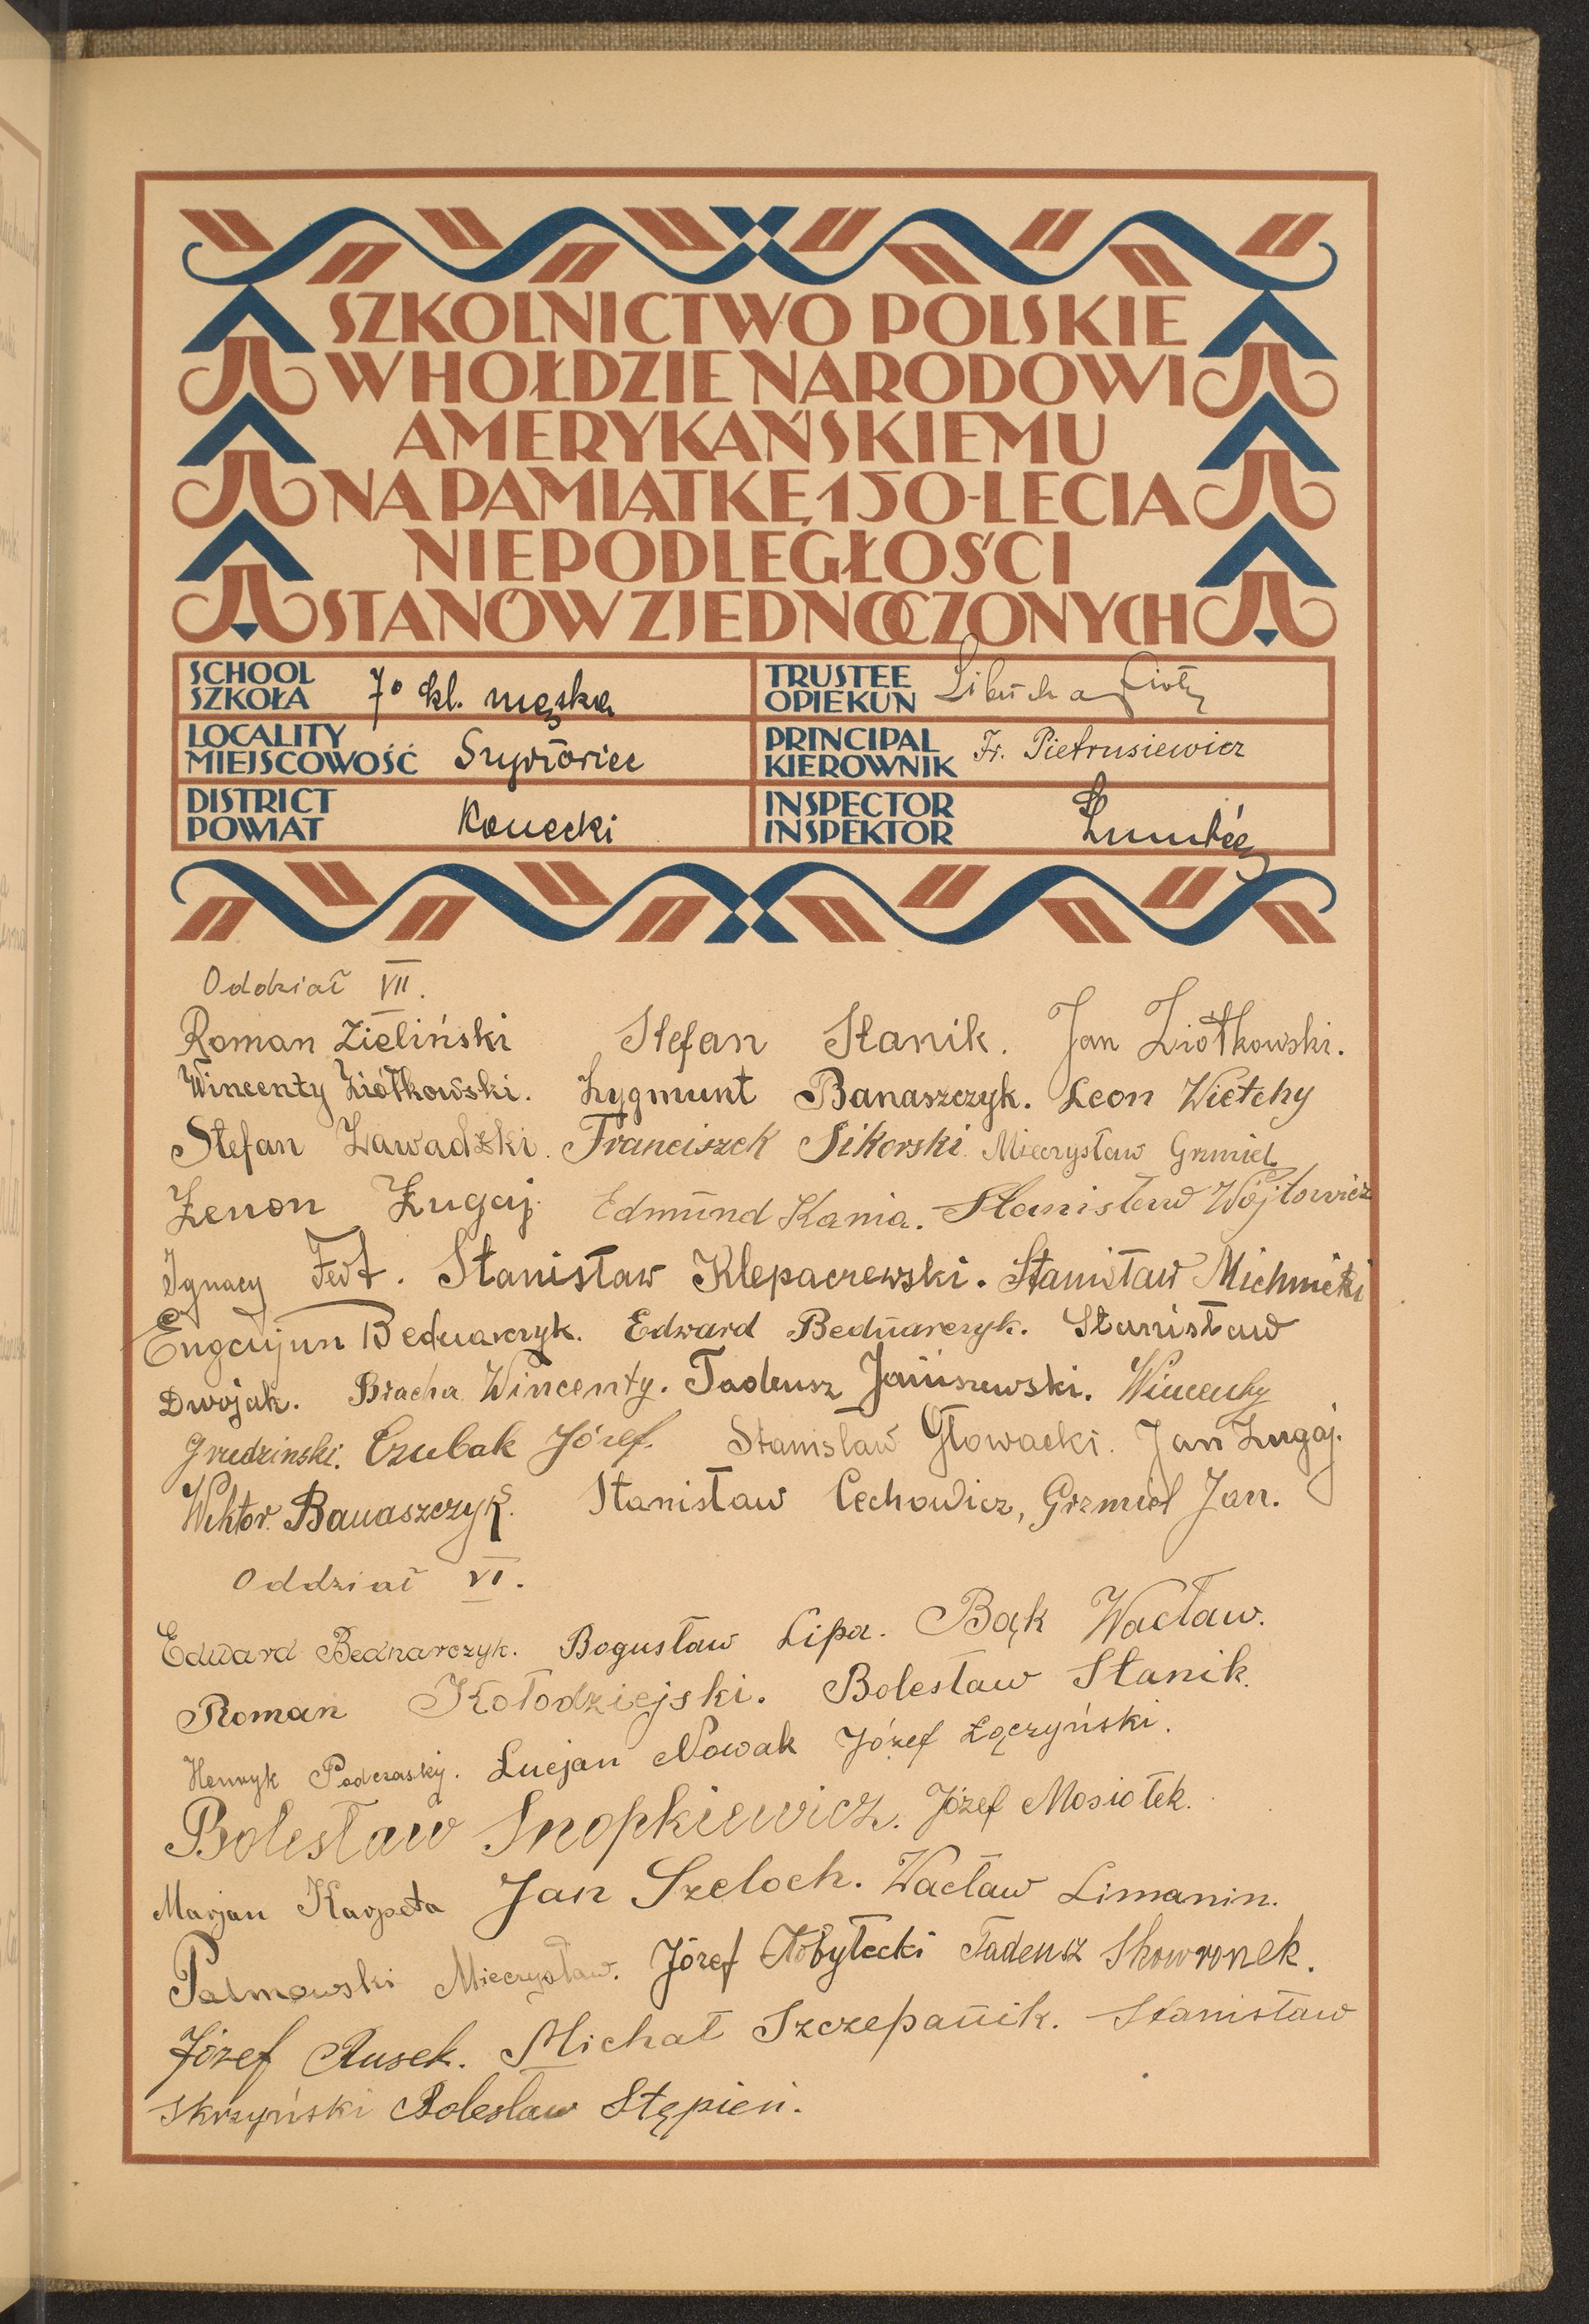 SZKOLNICTWO POLSKIE
W HOŁDZIE NARODOWI
AMERYKAŃSKIEMU
NA PAMIĄTKĘ 150-LECIA
NIEPODLEGŁOŚCI
STANÓW ZJEDNOCZONYCH
SCHOOL
SZKOŁA 7º kl. męska
TRUSTEE
OPIEKUN
LOCALITY
MIEJSCOWOŚĆ Szydłowiec
PRINCIPAL
KIEROWNIK Fr. Pietrusiewicz
DISTRICT
POWIAT Konecki
INSPECTOR
INSPEKTOR
Oddział VII.
Roman Zieliński Stefan Stanik. Jan Ziółkowski.
Wincenty Ziółkowski. Zygmunt Banaszczyk. Leon Wietchy
Stefan Zawadzki. Franciszek Sikorski. Mieczysław Grzmiel
Zenon Żugaj. Edmund Kania. Stanisław Wójtowicz
Ignacy Fert. Stanisław Klepaczewski. Stanisław Michnicki
Eugenjun Bednarczyk. Edward Bednarczyk. Stanisław
Dwojak. Bracha Wincenty. Tadeusz Januszewski. Wincenty
Grudzinski. Czubak Józef. Stanisław Głowacki. Jan Żugaj.
Wiktor. Banaszczyk. Stanisław Cechowicz, Grzmiel Jan.
Oddział VI.
Edward Bednarczyk. Bogusław Lipa. Bąk Wacław.
Roman Kołodziejski. Bolesław Stanik.
Henryk Podczaski. Lucjan Nowak Józef Łączyński.
Bolesław Snopkiewicz. Józef Mosiołek.
Marjan Karpeta Jan Szeloch. Wacław Limanin.
Palmowski Mieczysław. Józef Kobyłecki Tadeusz Skowronek.
Józef Rusek. Michał Szczepanik. Stanisław
Skrzyński Bolesław Stępień.